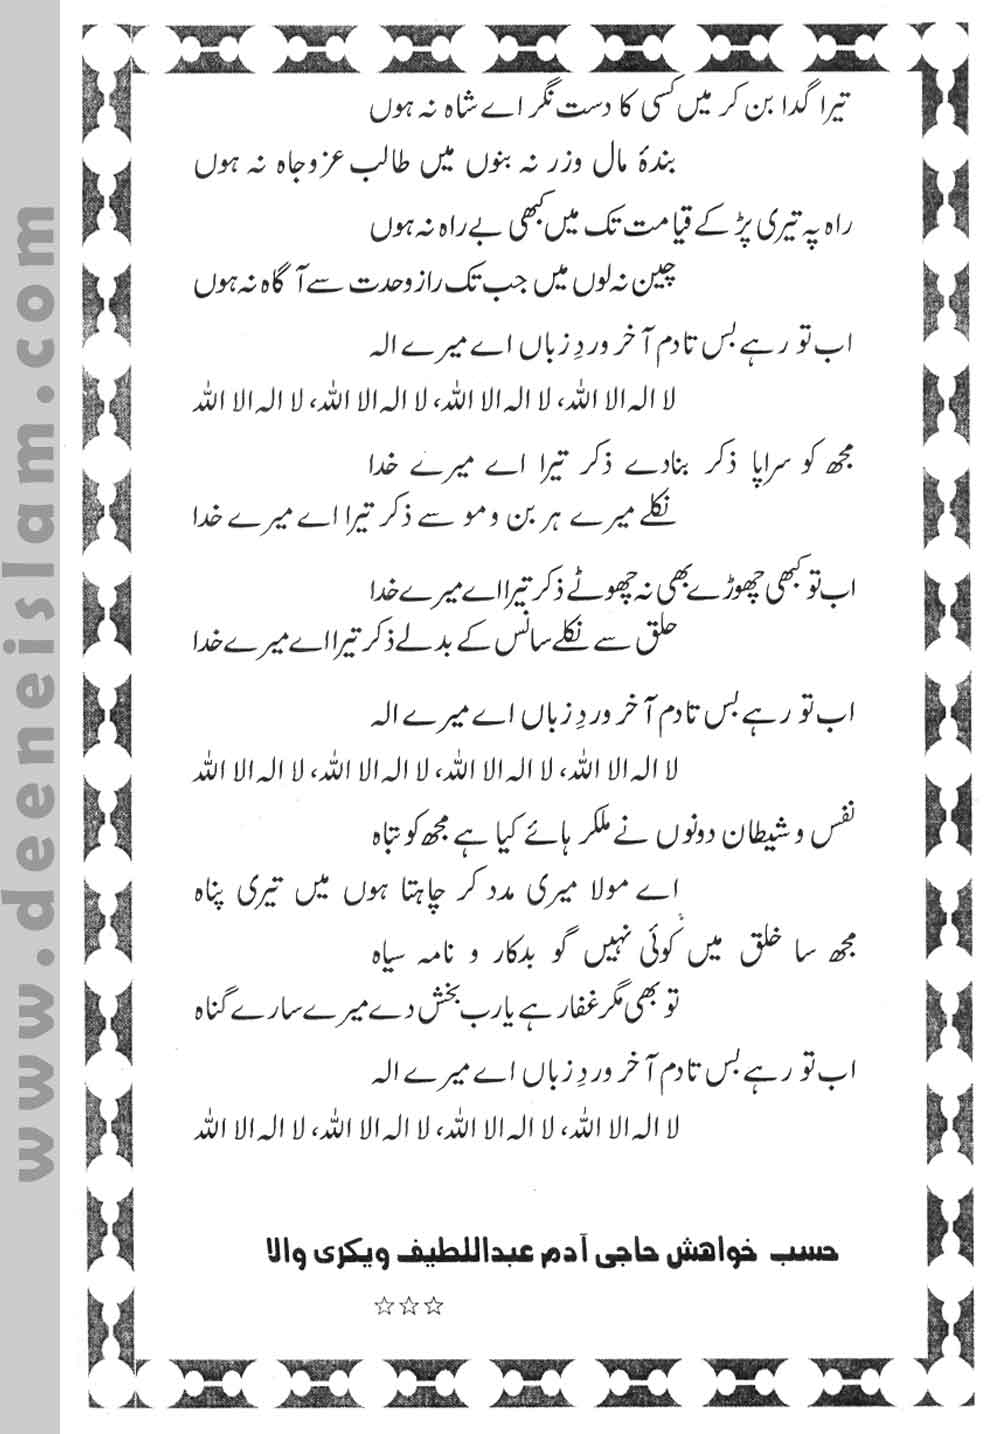 تیرا گدا بن کر میں کسی کا دست نگر اے شاہ نہ ہوں
بندۂ مال وزر نہ بنوں میں طالب عزوجاہ نہ ہوں
راہ پہ تیری پڑ کے قیامت تک میں کبھی بے راہ نہ ہوں
چین نہ لوں میں جب تک راز وحدت سے آگاہ نہ ہوں
اب تو رہے بس تادم آخر وردِ زباں اے میرے الہ
لا الہ الا اللہ، لا الہ الا اللہ، لا الہ الا اللہ، لا الہ الا اللہ
مجھ کو سراپا ذکر بنادے ذکر تیرا اے میرے خدا
نکلے میرے ہر بن ومو سے ذکر تیرا اے میرے خدا
اب تو کبھی چھوڑے بھی نہ چھوٹے ذکر تیرا اے میرے خدا
حلق سے نکلے سانس کے بدلے ذکر تیرا اے میرے خدا
اب تو رہے بس تادم آخر وردِ زباں اے میرے الہ
لا الہ الا اللہ، لا الہ الا اللہ، لا الہ الا اللہ، لا الہ الا اللہ
نفس وشیطان دونوں نے ملکر ہائے کیا ہے مجھ کو تباہ
اے مولا میری مدد کر چاہتا ہوں میں تیری پناہ
مجھ سا خلق میں کوئی نہیں گو بدکار و نامہ سیاہ
تو بھی مگر غفار ہے یارب بخش دے میرے سارے گناہ
اب تو رہے بس تادم آخر وردِ زباں اے میرے الہ
لا الہ الا اللہ، لا الہ الا اللہ، لا الہ الا اللہ، لا الہ الا اللہ
حسب خواهش حاجی آدم عبداللطیف ویکری والا
☆☆☆
www.deeneislam.com